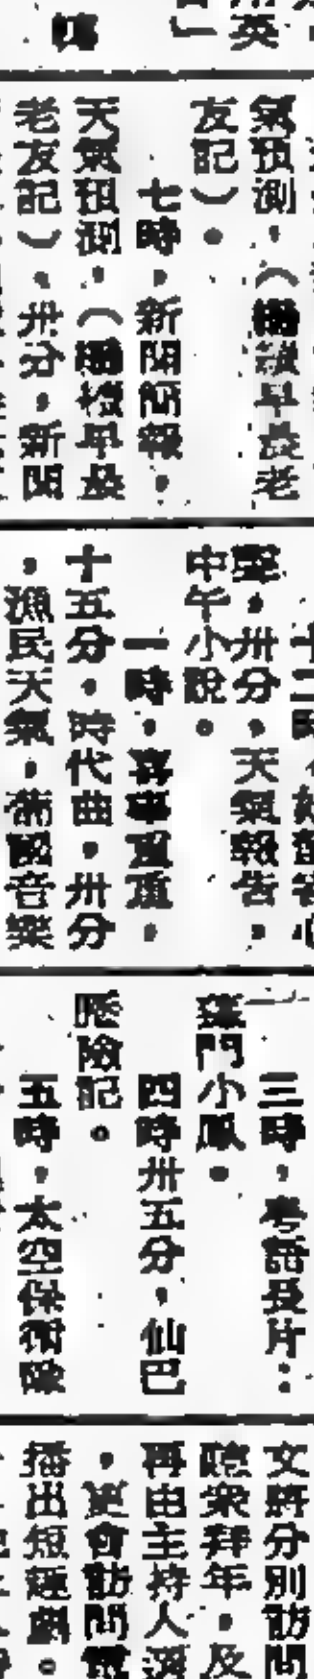 氣預測，（
早晨老
友記）。
七時，新聞簡報，
天氣預測，（
早晨
老友記）。卅分，新聞
聲，卅分，天氣報告，
中午小說。
一時，喜事重重，
十五分，時代曲，卅分
，漁民天氣，
國音樂
三時，粵語長片：
蓬門小鳳。
四時卅五分，仙巴
歷險記。
五時，太空保衛隊
文將分別訪問
聽衆拜年，及
再由主持人
，更會訪問
播出短
劇。